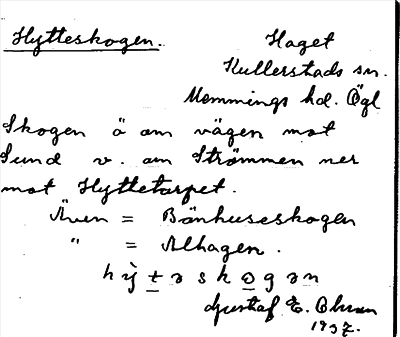 Hytteskogen.
Haget
Kullerstads sn.
Memmings hd. Ögl
Skogen ö om vägen mot
Sund v. om Strömmen ner
mot Hyttetorpet.
Även = Bönhuseskogen
" = Alhagen.
Gustaf E.
1937.